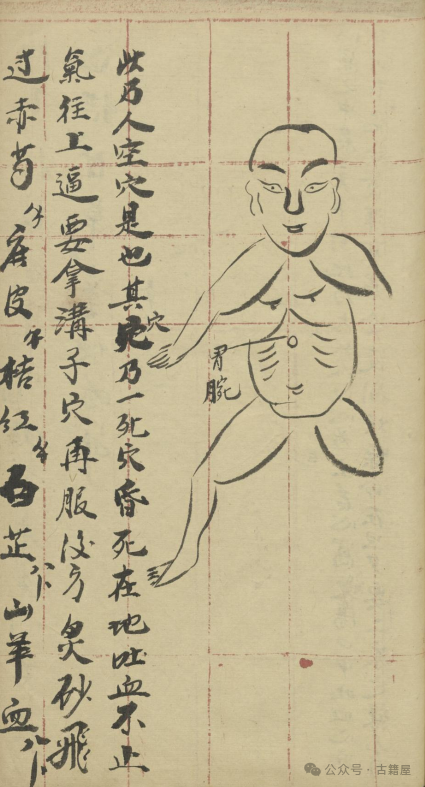 此乃人空穴是也其穴乃一死穴昏死在地吐血不止
氣往上逼要拿溝子穴再服後方炙砂飛
过赤芍 皮 桔红 白芷 八卜 山羊血 八卜
胃脘
公众号·古籍屋